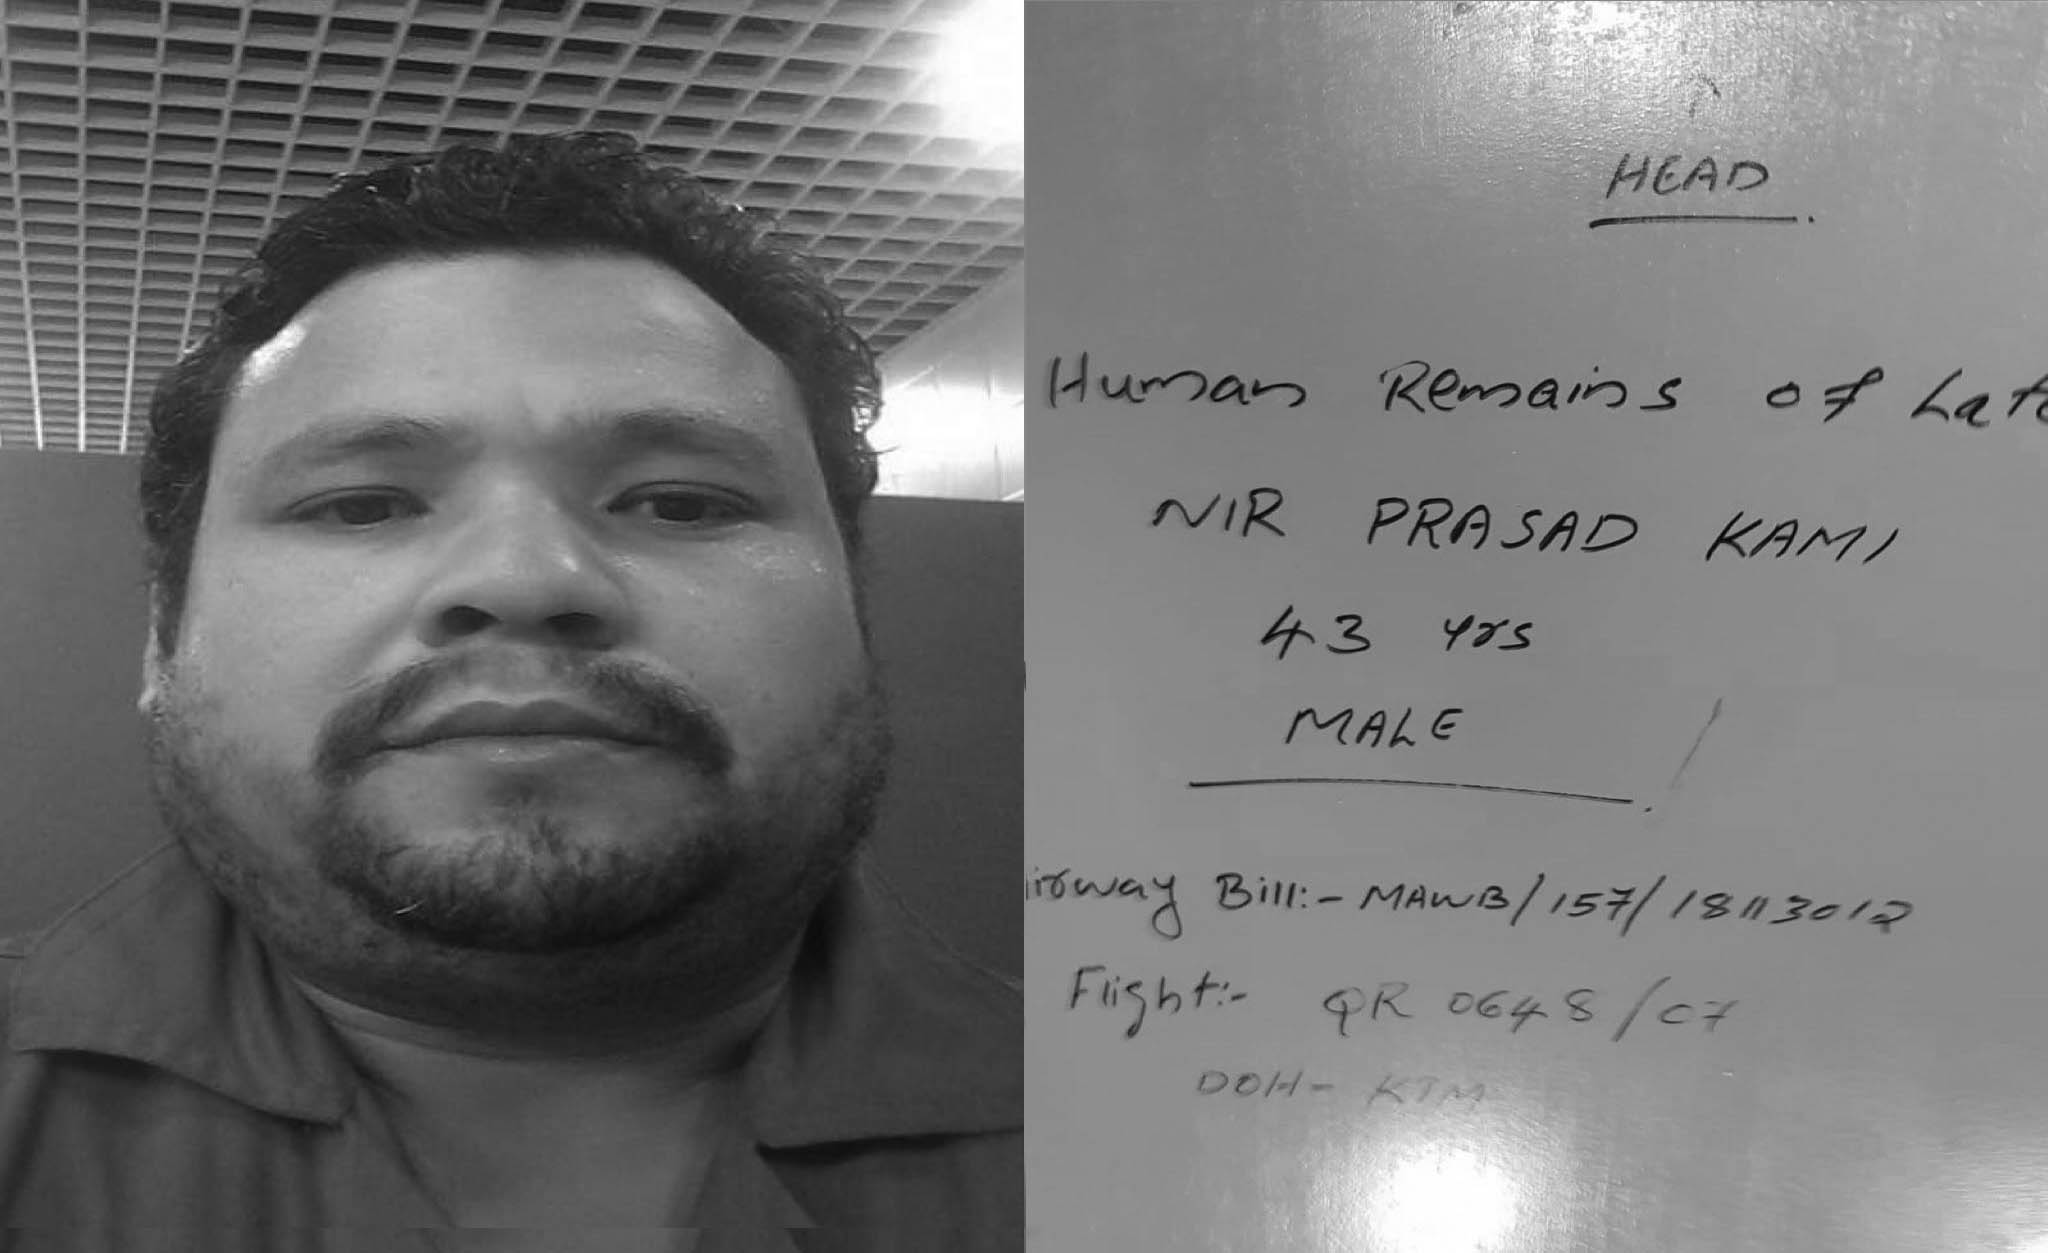 HEAD
Human Remains of Late
NIR PRASAD KAMI
43 yrs
MALE
Airway Bill:- MAWB/157/18113012
Flight:- QR 0648/07
DOH- KTM